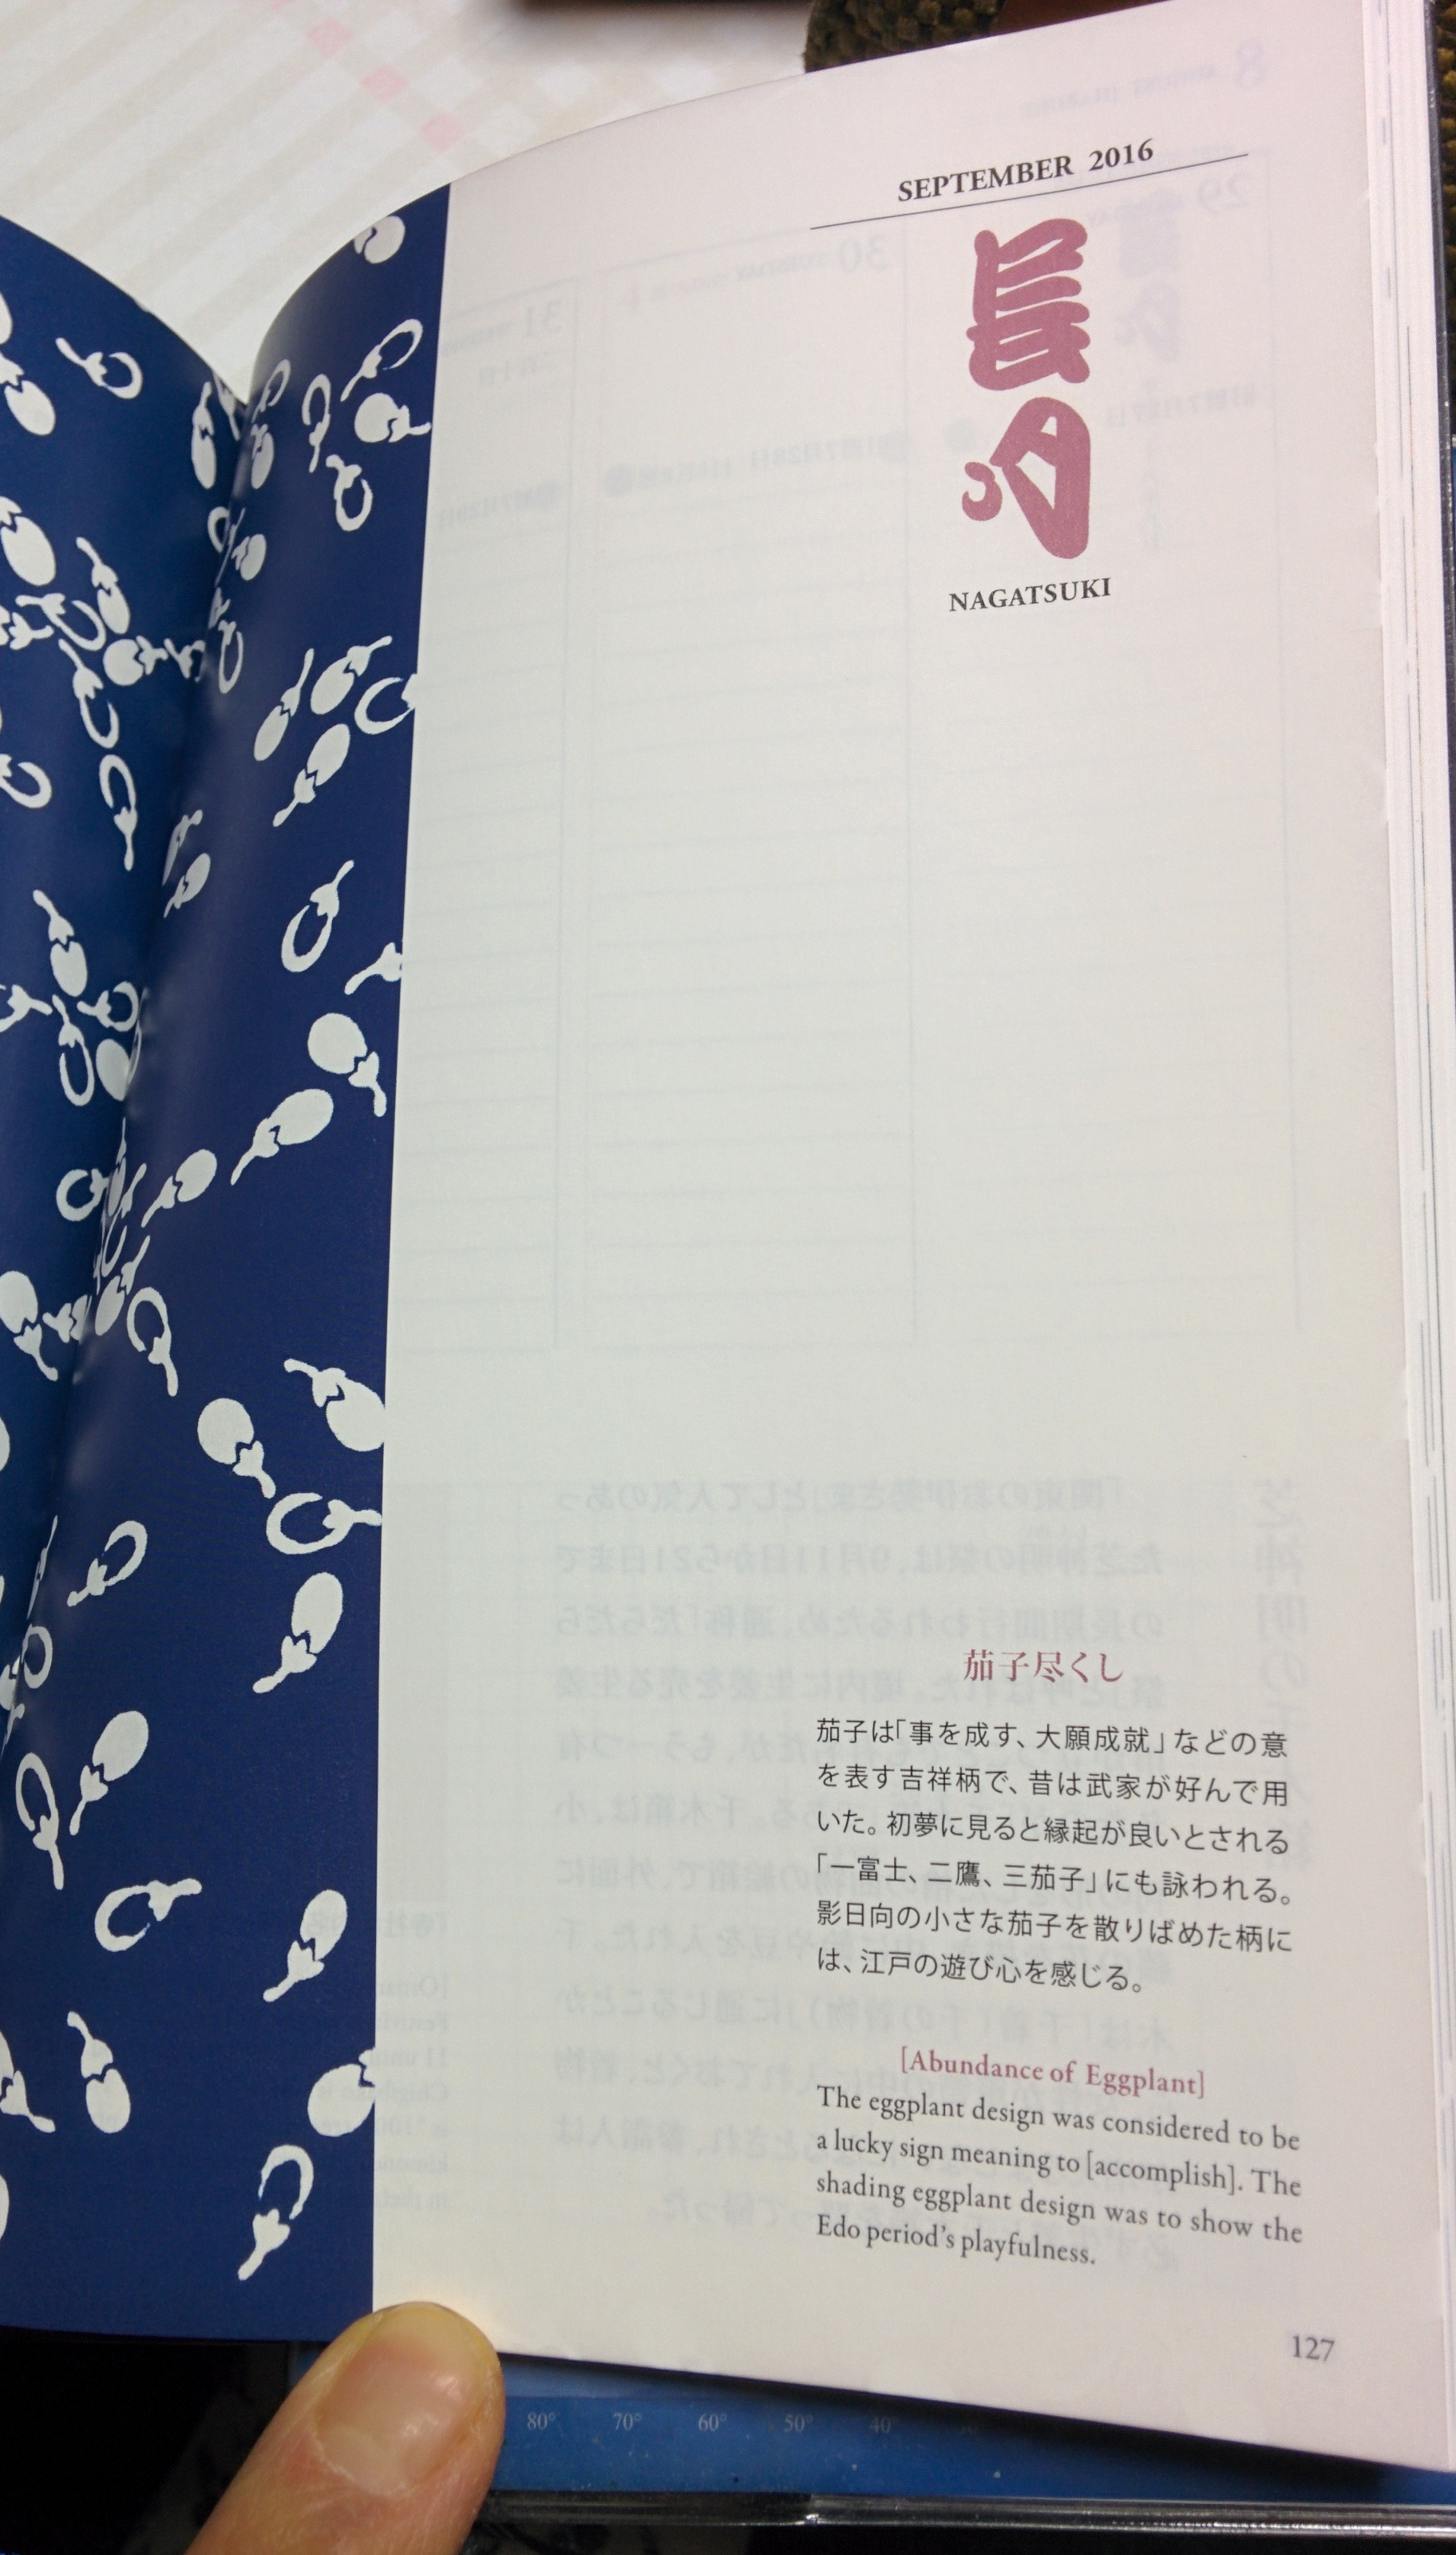 SEPTEMBER 2016
長月
NAGATSUKI
茄子尽くし
茄子は「事を成す、大願成就」などの意
を表す吉祥柄で、昔は武家が好んで用
いた。初夢に見ると縁起が良いとされる
「一富士、二鷹、三茄子」にも詠われる。
影日向の小さな茄子を散りばめた柄に
は、江戸の遊び心を感じる。
[Abundance of Eggplant]
The eggplant design was considered to be
a lucky sign meaning to [accomplish]. The
shading eggplant design was to show the
Edo period's playfulness.
127
80° 70° 60° 50° 40°